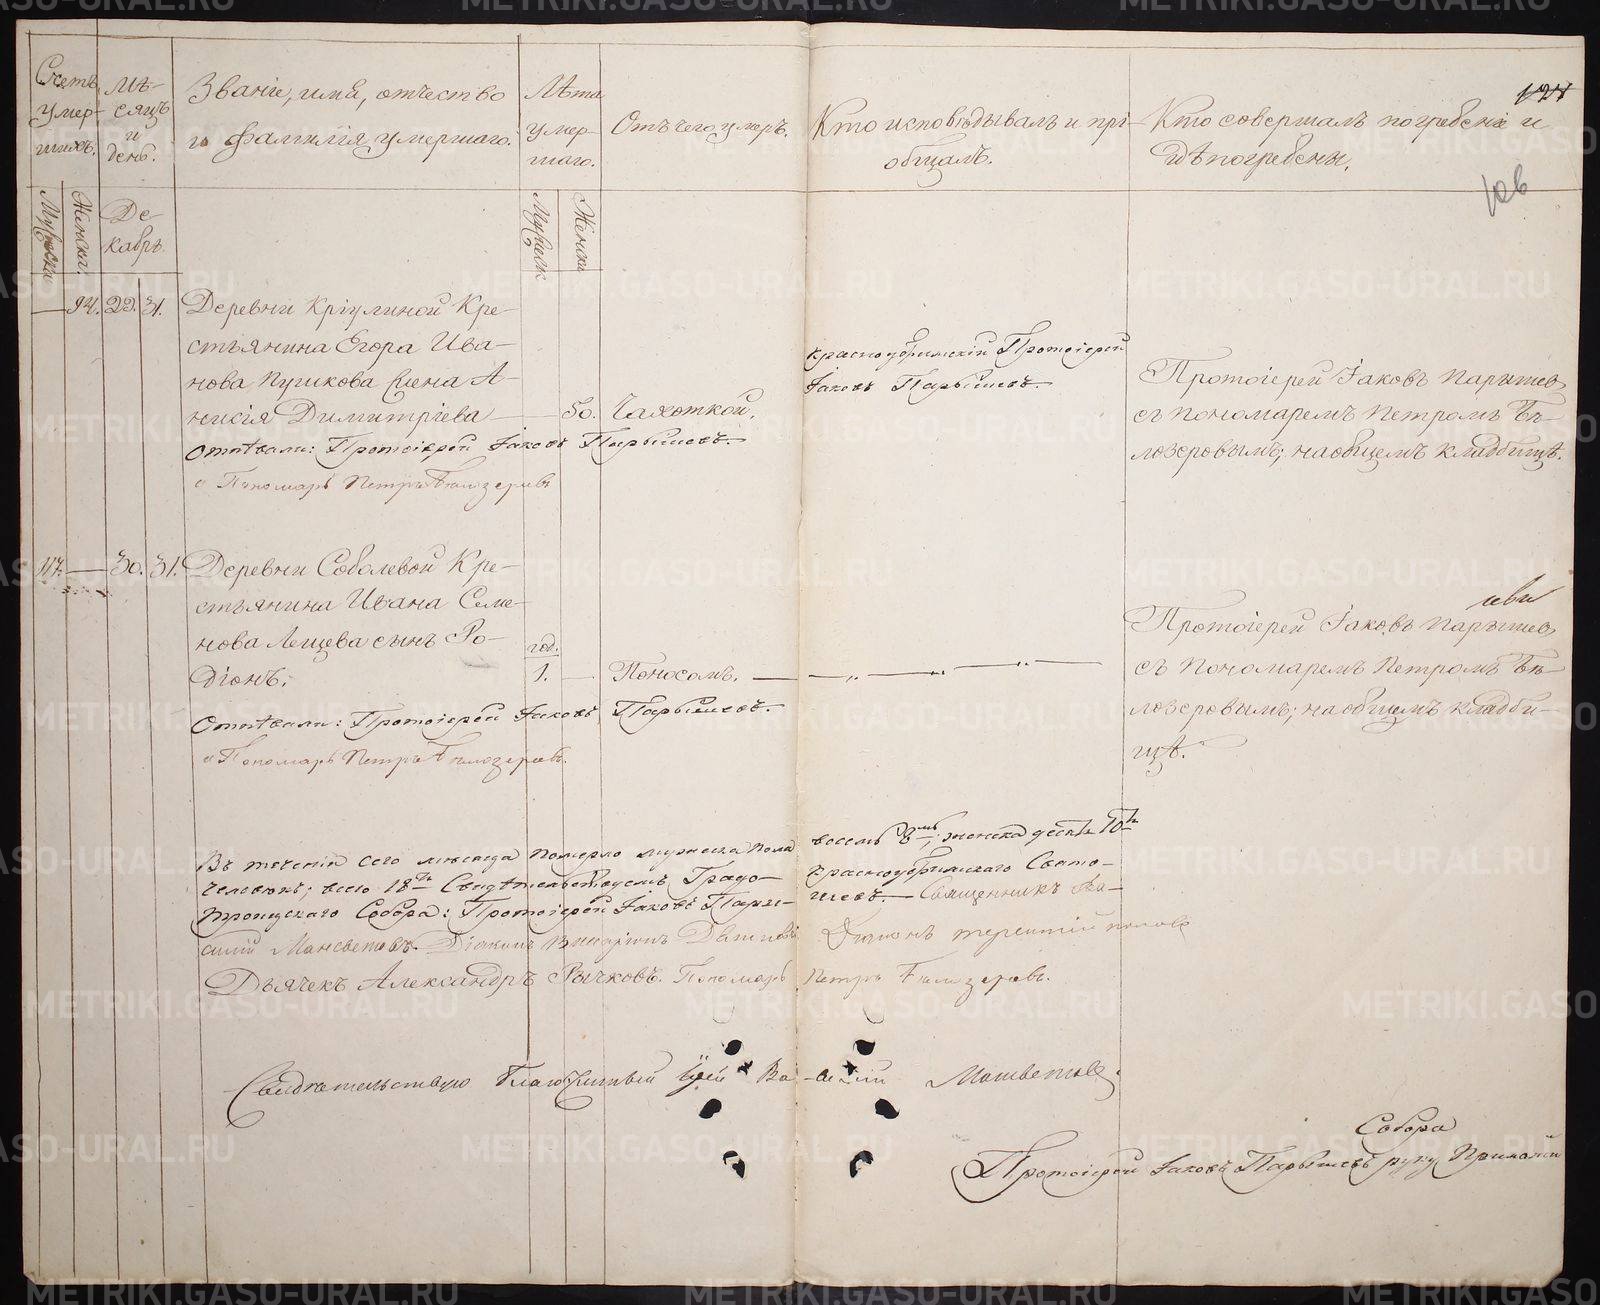 Счетъ умер-шихъ.
Мѣ-сяцъ и день.
Званіе, имя, отчество
и фамилія умершаго.
Лѣта умер-шаго.
Отъ чего умеръ.
Кто исповѣдывалъ и прі-
общалъ.
Кто совершалъ погребеніе и
гдѣ погребены.
106
Мужеска
Женска.
Де-
кабрь.
Мужеск
Женски
94. 29. 31. Деревни Кріулиной Кре-
стьянина Егора Ива-
нова Пушкова жена А-
нисія Димитріева 50. Чахоткой.
Отпѣвали: Протоіерей Іаковъ Парышевъ.
и Пономарь Петръ Бѣлозеровъ
Красноуфимскій Протоіерей
Іаковъ Парышевъ.
Протоіерей Іаковъ Парышев
съ пономаремъ Петромъ Бѣ-
лозеровымъ; на общемъ кладбищѣ.
117. 30. 31. Деревни Соболевой Кре-
стьянина Ивана Семе-
нова Лещева сынъ Ро-
діонъ.
год.
1. Поносомъ.
Отпѣвали: Протоіерей Іаковъ Парышевъ.
и Пономарь Петръ Бѣлозеровъ.
Протоіерей Іаковъ Парышев
съ пономаремъ Петромъ Бѣ-
лозеровымъ; на общемъ кладби-
щѣ.
Въ теченіи сего мѣсяца померло мужеска пола восемь 8мь; женска десять 10ть
человекъ; всего 18ть Свидѣтельствуемъ Градо-Красноуфимскаго Свято-
троицскаго Собора: Протоіерей Іаковъ Пары-шевъ. Священникъ Ва-
силій Мансветовъ. Діаконъ Діаконъ Терентій Попов
Дьячекъ Александръ Рычковъ. Пономарь Петръ Бѣлозеровъ.
Свидѣтельствую Благочинный Іерей Ва-силій Мансветовъ.
Собора
Протоіерей Іаковъ Парышевъ руку приложи
METRIKI.GASO-URAL.RU